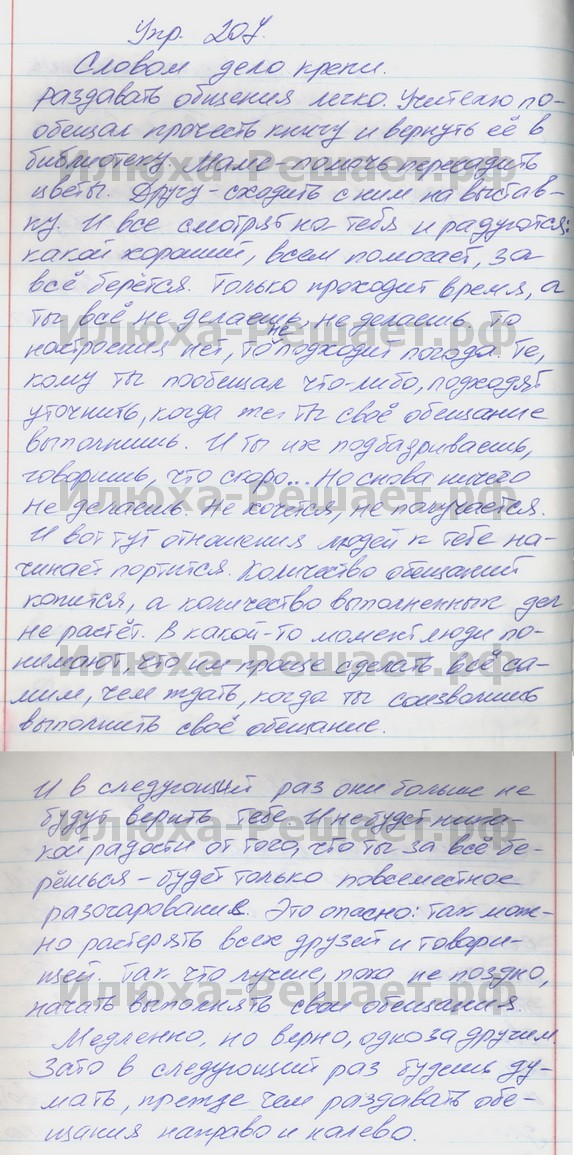 Упр. 207.
Словом дело крепи.
Раздавать общения легко. Учителю по-
обещал прочесть книгу и вернуть её в
библиотеку. Маме - помочь пересадить
цветы. Другу - сходить с ним на выстав-
ку. И все смотрят на тебя и радуются:
какой хороший, всем помогает, за
всё берётся. Только проходит время, а
ты всё не делаешь, не делаешь. То
настроения нет, то не подходит погода. Те,
кому ты пообещал что-либо, подходят
уточнить, когда же ты своё обещание
выполнишь. И ты их подбадриваешь,
говоришь, что скоро... Но снова ничего
не делаешь. Не хочется, не получается.
И вот тут отношения людей к тебе на-
чинает портится. Количество обещаний
копится, а количество выполненных дел
не растёт. В какой-то момент люди по-
нимают, что им проще сделать всё са-
мим, чем ждать, когда ты соизволишь
выполнить своё обещание.
И в следующий раз они больше не
будут верить тебе. И не будет ника-
кой радости от того, что ты за всё бе-
рёшься - будет только повсеместное
разочарование. Это опасно: так мож-
но растерять всех друзей и товари-
щей. Так что лучше, пока не поздно,
начать выполнять свои обещания.
Медленно, но верно, одно за другим.
Зато в следующий раз будешь ду-
мать, прежде чем раздавать обе-
щания направо и налево.
Илюха-Решает.рф
Илюха-Решает.рф
Илюха-Решает.рф
Илюха-Решает.рф
Илюха-Решает.рф
Илюха-Решает.рф